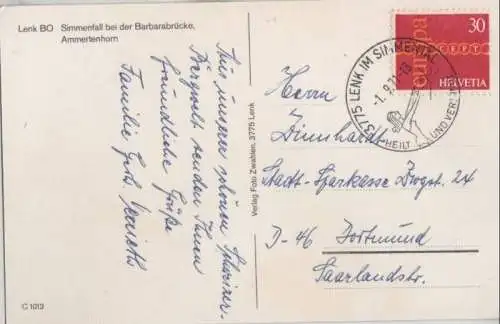 Lenk BO Simmenfall bei der Barbarabrücke,
Ammertenhorn
Aus unserer schönen Schweizer-
Bergwelt senden Ihnen
freundliche Grüße
Familie
Verlag Foto Zwahlen, 3775 Lenk
C 1013
30
europa
CEPT
HELVETIA
3775 LENK IM SIMMENTAL
-1.9.71-
HEILT UND
Herrn
Dinnhardt
Stadt-Sparkasse Zwgst. 24
D-46 Dortmund
Saarlandstr.